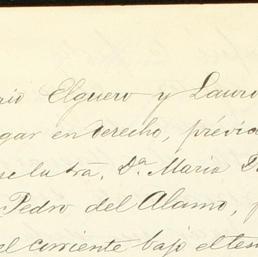 rio Elguero y Lauro
gar en derecho, prévia
se la trá, Dª. Maria
Pedro del Alamo,
el corriente bajo el tes